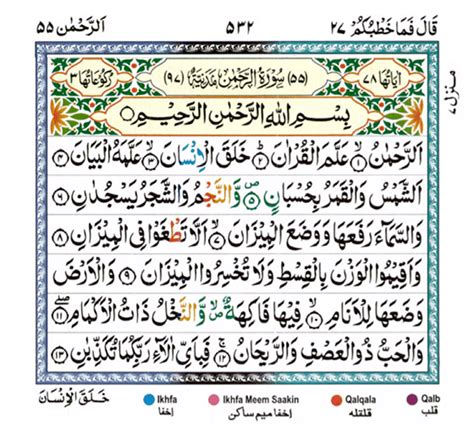 قَالَ فَمَا خَطْبُكُمْ ٢٧ ٥٣٢ اَلرَّحْمٰن ٥٥
اٰيَاتُهَا ٧٨ (٥٥) سُوْرَةُ الرَّحْمٰنِ مَدَنِيَّةٌ (٩٧) رُكُوْعَاتُهَا ٣
منزل ٧
بِسْمِ اللّٰهِ الرَّحْمٰنِ الرَّحِيْمِ ○
اَلرَّحْمٰنُ ۙ﴿١﴾ عَلَّمَ الْقُرْاٰنَ ؕ﴿٢﴾ خَلَقَ الْاِنْسَانَ ۙ﴿٣﴾ عَلَّمَهُ الْبَيَانَ ﴿٤﴾
اَلشَّمْسُ وَالْقَمَرُ بِحُسْبَانٍ ۪﴿٥﴾ وَّالنَّجْمُ وَالشَّجَرُ يَسْجُدٰنِ ﴿٦﴾
وَالسَّمَآءَ رَفَعَهَا وَوَضَعَ الْمِيْزَانَ ۙ﴿٧﴾ اَلَّا تَطْغَوْا فِى الْمِيْزَانِ ﴿٨﴾
وَاَقِيْمُوا الْوَزْنَ بِالْقِسْطِ وَلَا تُخْسِرُوا الْمِيْزَانَ ﴿٩﴾ وَالْاَرْضَ
وَضَعَهَا لِلْاَنَامِ ۙ﴿١٠﴾ فِيْهَا فَاكِهَةٌ ۪ۙ وَّالنَّخْلُ ذَاتُ الْاَكْمَامِ ۖ﴿١١﴾
وَالْحَبُّ ذُو الْعَصْفِ وَالرَّيْحَانُ ۚ﴿١٢﴾ فَبِاَىِّ اٰلَآءِ رَبِّكُمَا تُكَذِّبٰنِ ﴿١٣﴾
خَلَقَ الْاِنْسَانَ
Ikhfa Ikhfa Meem Saakin Qalqala Qalb
اخفا اخفا میم ساکن قلقله قلب